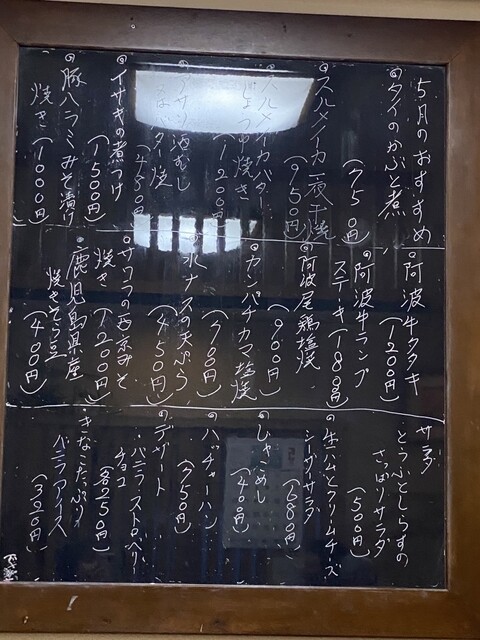 5月のおすすめ
◎タイのかぶと煮
(750円)
◎スルメイカ一夜干焼
(950円)
◎スルメイカバター
しょうゆ焼き
(1200円)
◎アサリ酒むし
バター焼
(450円)
◎イサキの煮つけ
(1500円)
◎豚ハラミみそ漬け
焼き(1000円)
◎阿波牛タタキ
(1200円)
◎阿波牛ランプ
ステーキ(1800円)
◎阿波尾鶏塩焼
(900円)
◎カンパチカマ塩焼
(700円)
水ナスの天ぷら
(450円)
◎サワラの西京みそ
焼き(1200円)
◎鹿児島県産
焼きそら豆
(400円)
サラダ
とうふとしらすの
さっぱりサラダ
(500円)
◎生ハムとクリームチーズ
シーザーサラダ
(680円)
◎じゃこめし
(400円)
◎バッチャーハン
(750円)
◎デザート
・バニラ・ストロベリー
チョコ
(各250円)
・きなこたっぷり
バニラアイス
(320円)